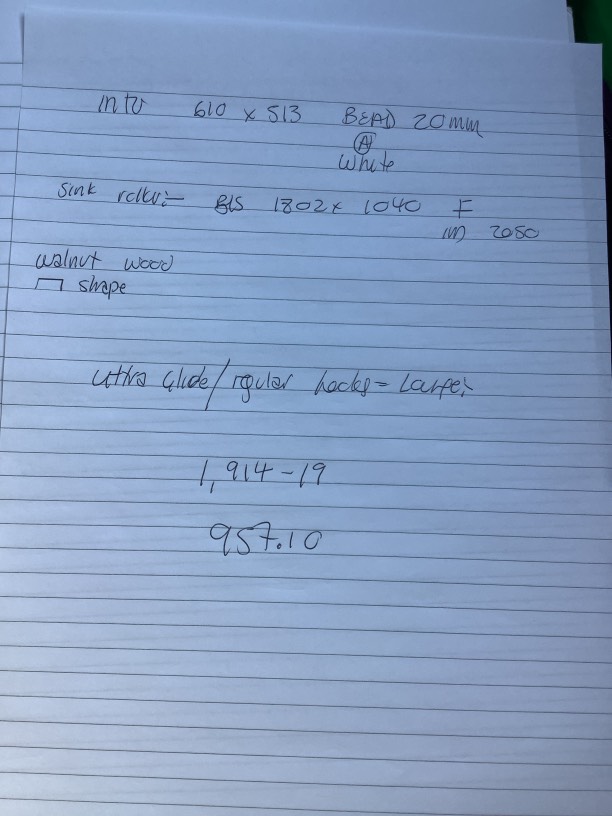 INTU 610 x 513 BEAD 20mm
A
White
Sink roller:- BLS 1802 x 1040 F
IN 2050
walnut wood
shape
Ultra Glide/regular hocks=
1,914-19
957.10